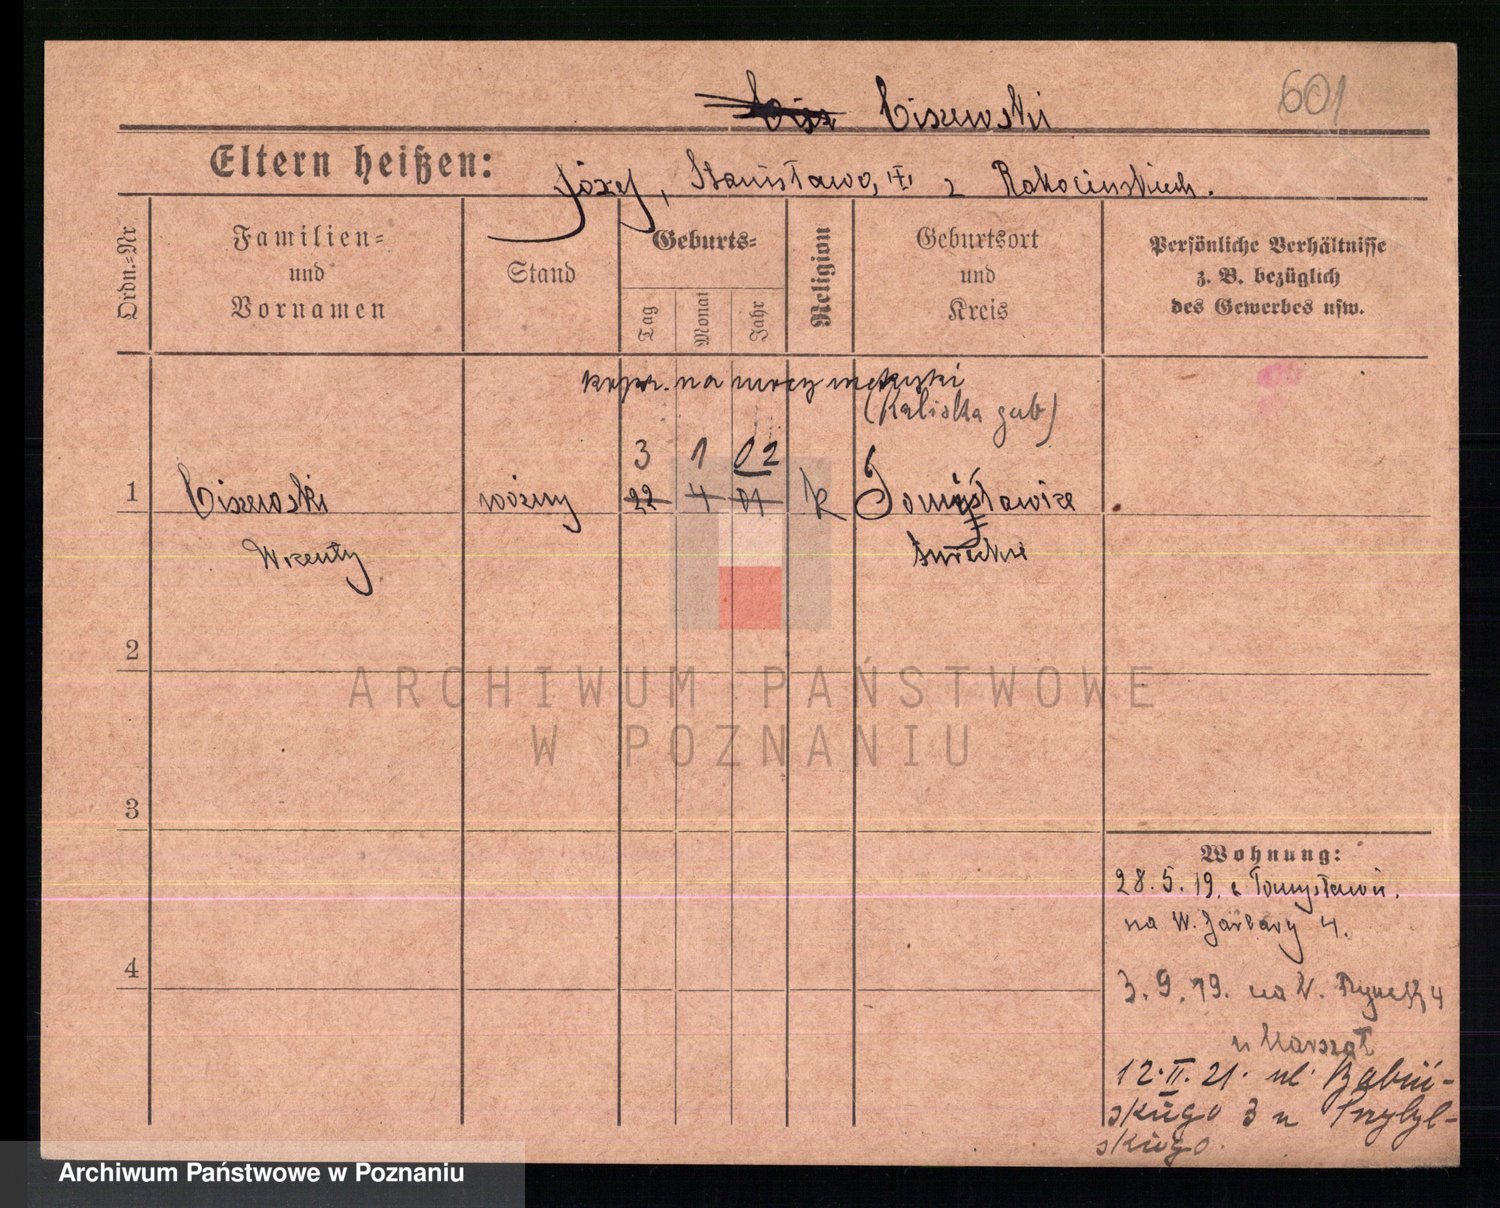 601
Ciszewski
Eltern heißen: Józef, Stanisława, z Rakocińskich.
Ordn.=Nr
Familien=
und
Vornamen
Stand
Geburts=
Tag
Monat
Jahr
Religion
Geburtsort
und
Kreis
Persönliche Verhältnisse
z. B. bezüglich
des Gewerbes usw.
na mocy metryki
(Kaliska gub)
3 1 02
1 Ciszewski woźny 22 4 01 k Tomysławice
Wincenty turecki
2
ARCHIWUM PAŃSTWOWE
W POZNANIU
3
Wohnung:
28. 5. 19. z Tomysławic.
na W. Garbary 4.
4
3. 9. 19. na W. Rynek 4
u Marszał
12. II. 21. ul. Babiń-
skiego 3 u Przybyl-
skiego.
Archiwum Państwowe w Poznaniu